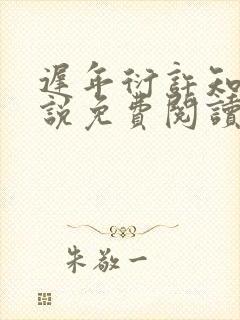 遲年衍許知
說免費閱讀
朱敬一